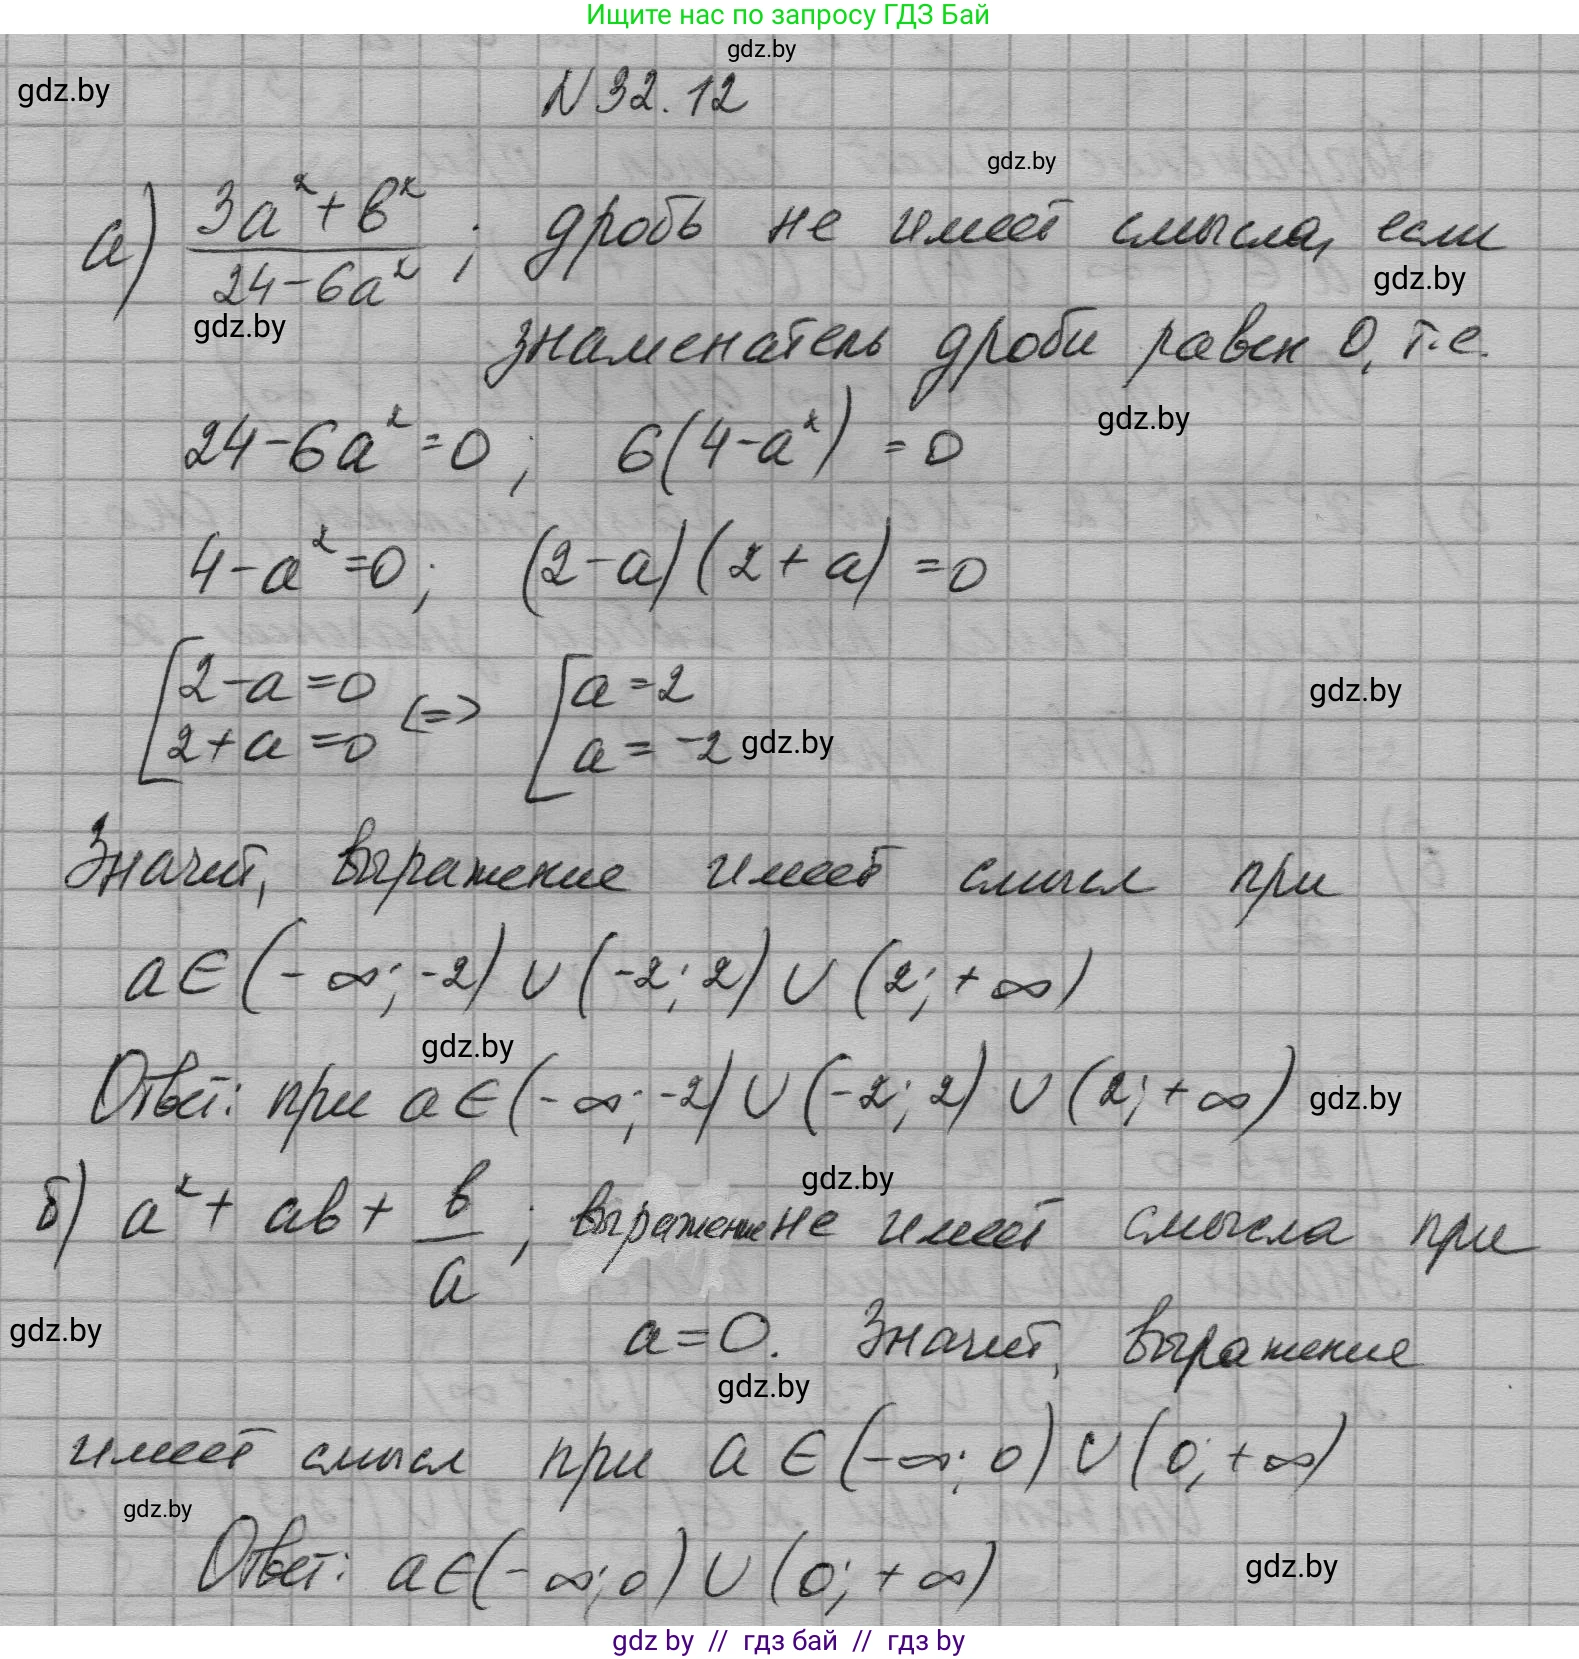 Ищите нас по запросу ГДЗ Бай
gdz.by
gdz.by
N 32.12
gdz.by
а) (3a² + b²)/(24 - 6a²); дробь не имеет смысла, если
gdz.by
gdz.by
знаменатель дроби равен 0, т.е.
gdz.by
24 - 6a² = 0; 6(4 - a²) = 0
4 - a² = 0; (2 - a)(2 + a) = 0
[2 - a = 0 <=> [a = 2
2 + a = 0 a = -2
gdz.by
gdz.by
Значит, выражение имеет смысл при
a ∈ (-∞; -2) ∪ (-2; 2) ∪ (2; +∞)
gdz.by
Ответ: при a ∈ (-∞; -2) ∪ (-2; 2) ∪ (2; +∞)
gdz.by
gdz.by
б) a² + ab + b/a; выражение не имеет смысла при
gdz.by
a = 0. Значит, выражение
gdz.by
имеет смысл при a ∈ (-∞; 0) ∪ (0; +∞)
gdz.by
Ответ: a ∈ (-∞; 0) ∪ (0; +∞)
gdz.by
gdz by // гдз бай // гдз by